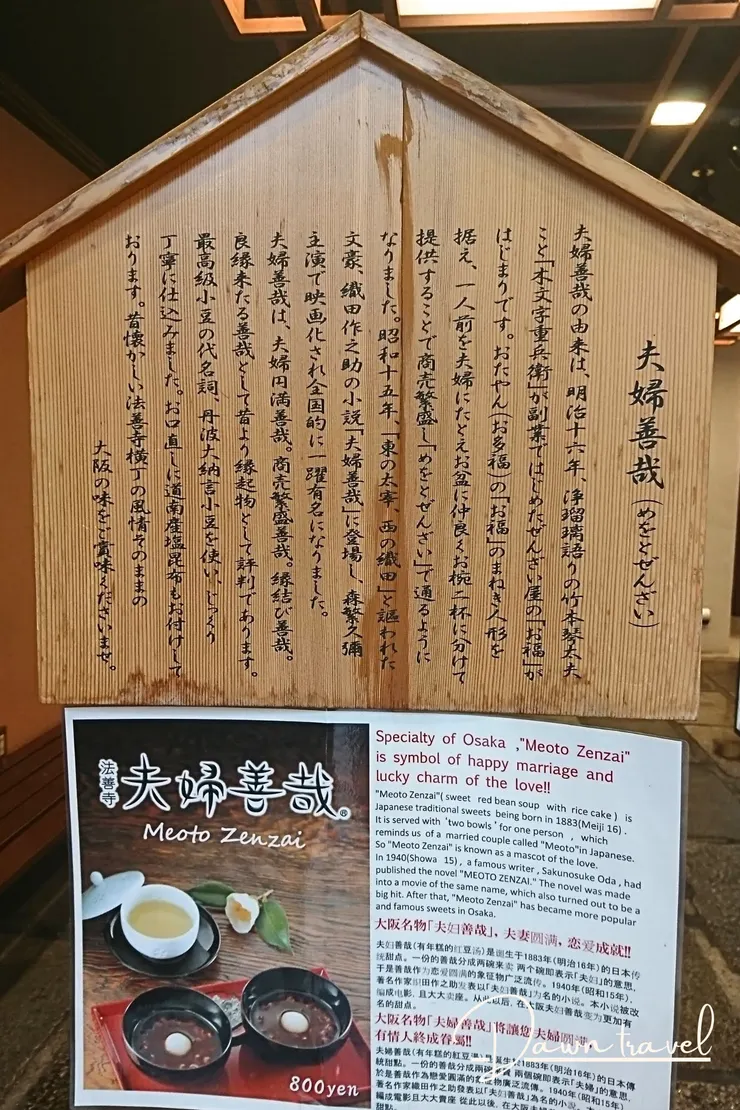 夫婦善哉(めをとぜんざい)
夫婦善哉の由来は、明治十六年、浄瑠璃語りの竹本琴太夫
こと「木文字重兵衛」が副業ではじめたぜんざい屋の「お福」が
はじまりです。おたやん(お多福)の「お福」のまねき人形を
据え、一人前を夫婦にたとえお盆に仲良くお椀二杯に分けて
提供することで商売繁盛し「めをとぜんざい」で通るように
なりました。昭和十五年、「東の太宰、西の織田」と謳われた
文豪、織田作之助の小説「夫婦善哉」に登場し、森繁久彌
主演で映画化され全国的に一躍有名になりました。
夫婦善哉は、夫婦円満善哉。商売繁盛善哉。縁結び善哉。
良縁来たる善哉として昔より縁起物として評判であります。
最高級小豆の代名詞、丹波大納言小豆を使い、じっくり
丁寧に仕込みました。お口直しに道南産塩昆布もお付けして
おります。昔懐かしい法善寺横丁の風情そのままの
大阪の味をご賞味くださいませ。
法善寺
夫婦善哉®
Meoto Zenzai
800yen
Specialty of Osaka ,"Meoto Zenzai"
is symbol of happy marriage and
lucky charm of the love!!
"Meoto Zenzai"( sweet red bean soup with rice cake ) is
Japanese traditional sweets being born in 1883(Meiji 16) .
It is served with 'two bowls ' for one person , which
reminds us of a married couple called "Meoto"in Japanese.
So "Meoto Zenzai" is known as a mascot of the love.
In 1940(Showa 15) , a famous writer , Sakunosuke Oda , had
published the novel "MEOTO ZENZAI." The novel was made
into a movie of the same name, which also turned out to be a
big hit. After that, "Meoto Zenzai" has became more popular
and famous sweets in Osaka.
大阪名物「夫妇善哉」，夫妻圆满，恋爱成就!!
夫妇善哉(有年糕的红豆汤)是诞生于1883年(明治16年)的日本传
统甜点。一份的善哉分成两碗来卖 两个碗即表示「夫妇」的意思，
于是善哉作为恋爱圆满的象征物广泛流传。1940年(昭和15年)，
著名作家织田作之助发表以「夫妇善哉」为名的小说。本小说被改
编成电影，且大大卖座。从此以后，在大阪夫妇善哉变为更加有
名的甜点。
大阪名物「夫婦善哉」将讓您夫婦圓滿
有情人終成眷屬!!
夫婦善哉(有年糕的紅豆湯)誕生於1883年(明治16年)的日本傳
統甜點。一份的善哉分成兩碗 兩個碗即表示「夫婦」的意思，
於是善哉作為戀愛圓滿的 物廣泛流傳。1940年(昭和15年)，
著名作家織田作之助發表以「夫婦善哉」為名的小說。
編成電影且大大賣座 從此以後，在大阪夫婦善
甜點。
Dawn travel